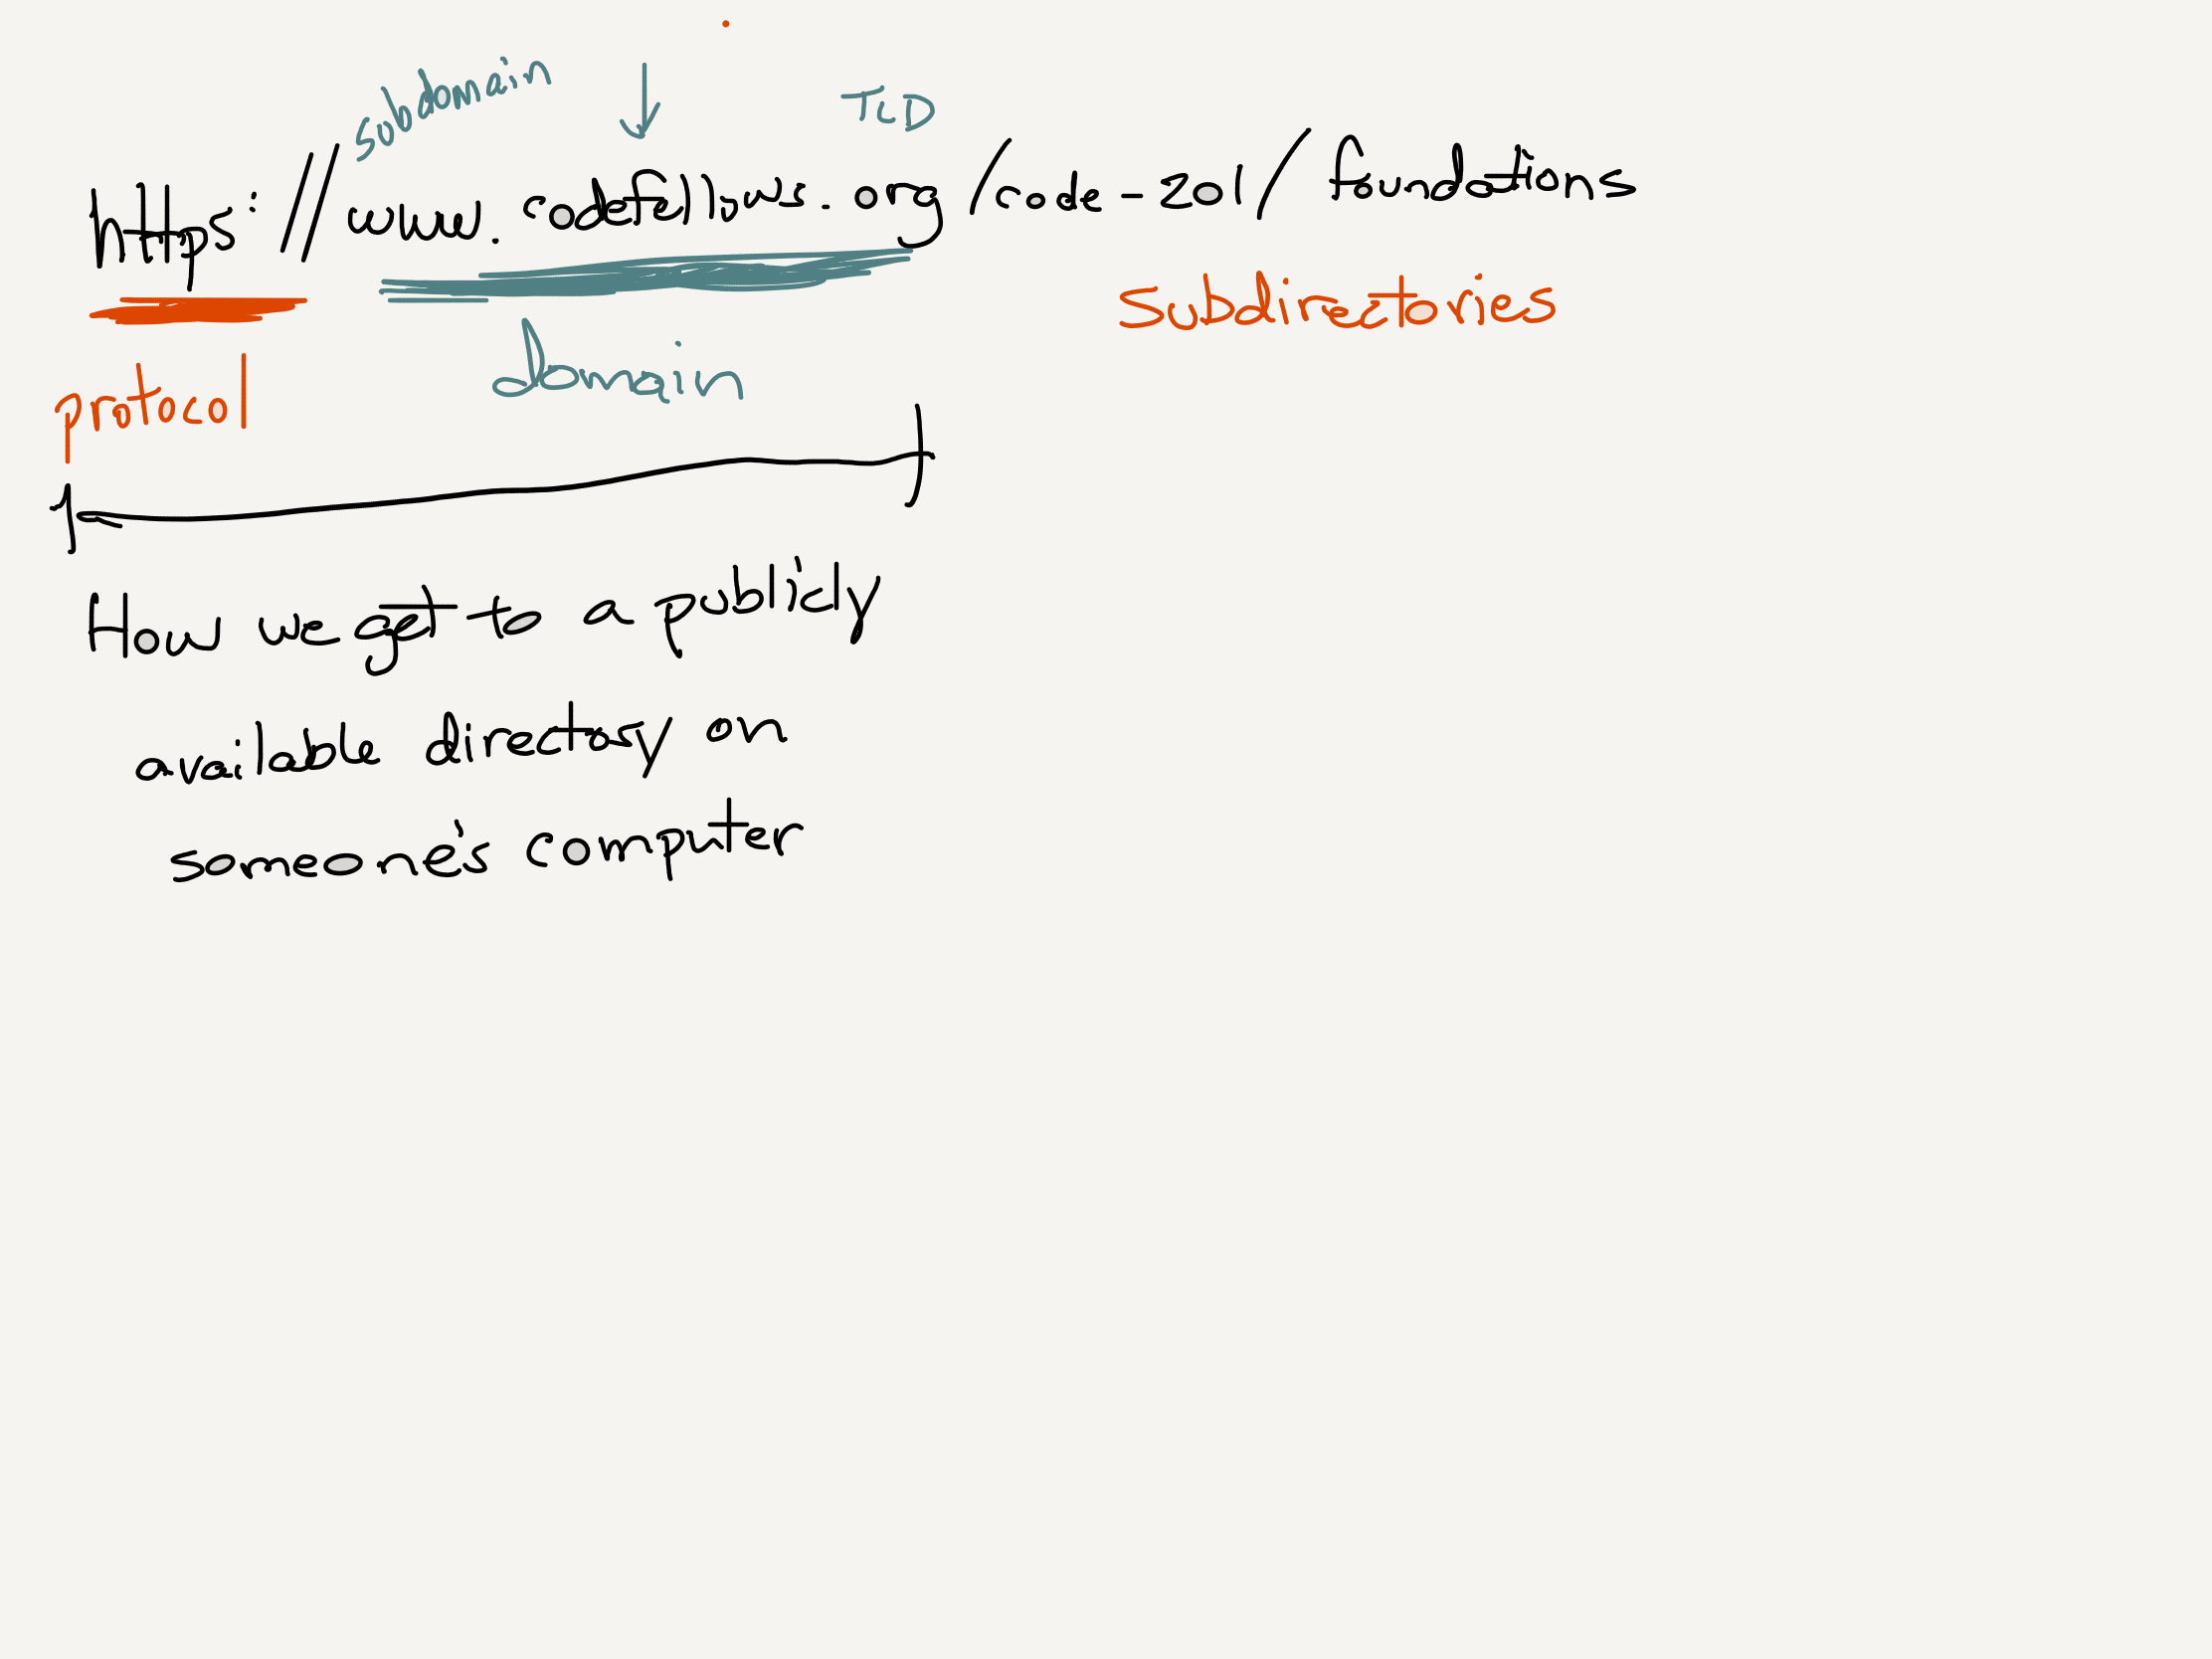 subdomain
TLD
https://www.codefellows.org/code-201/foundations
subdirectories
domain
protocol
How we get to a publicly
available directory on
someone's computer